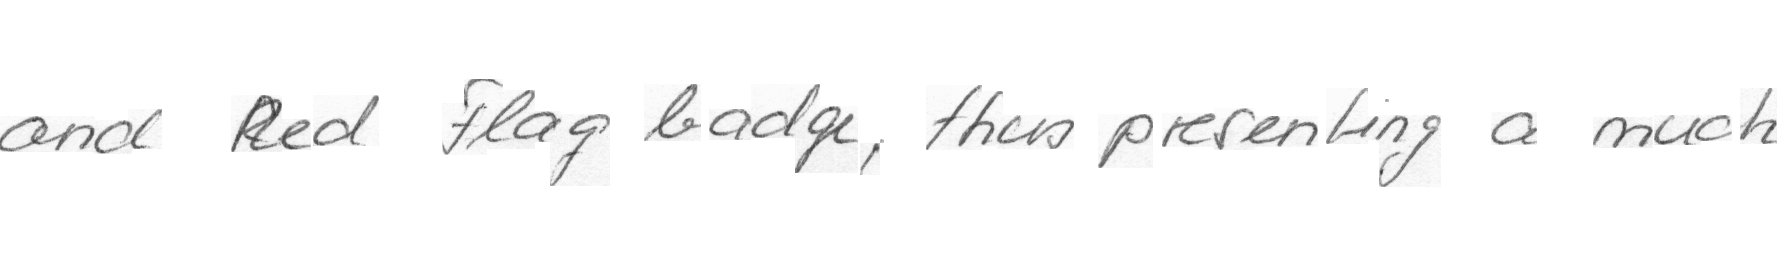 and Red Flag badge, thus presenting a much